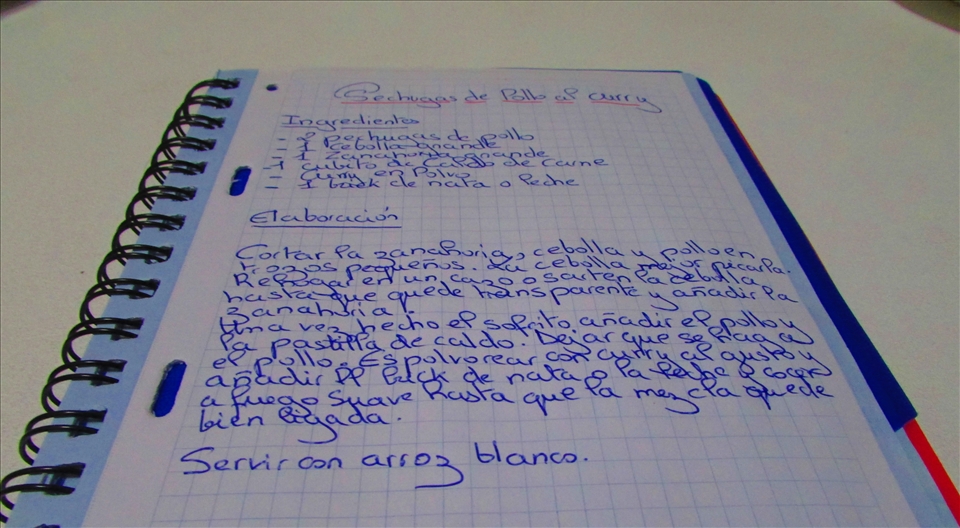 Pechugas de Pollo al curry
Ingredientes
- 2 pechugas de pollo
- 1 cebolla grande
- 1 zanahoria grande
- 1 cubito de caldo de carne
- Curry en Polvo
- 1 brick de nata o leche
Elaboración
Cortar la zanahoria, cebolla y pollo en
trozos pequeños. La cebolla mejor picarla.
Rehogar en un cazo o sarten la cebolla
hasta que quede transparente y añadir la
zanahoria.
Una vez hecho el sofrito, añadir el pollo y
la pastilla de caldo. Dejar que se haga
el pollo. Espolvorear con curry al gusto y
añadir el brick de nata o la leche y cocer
a fuego suave hasta que la mezcla quede
bien ligada.
Servir con arroz blanco.